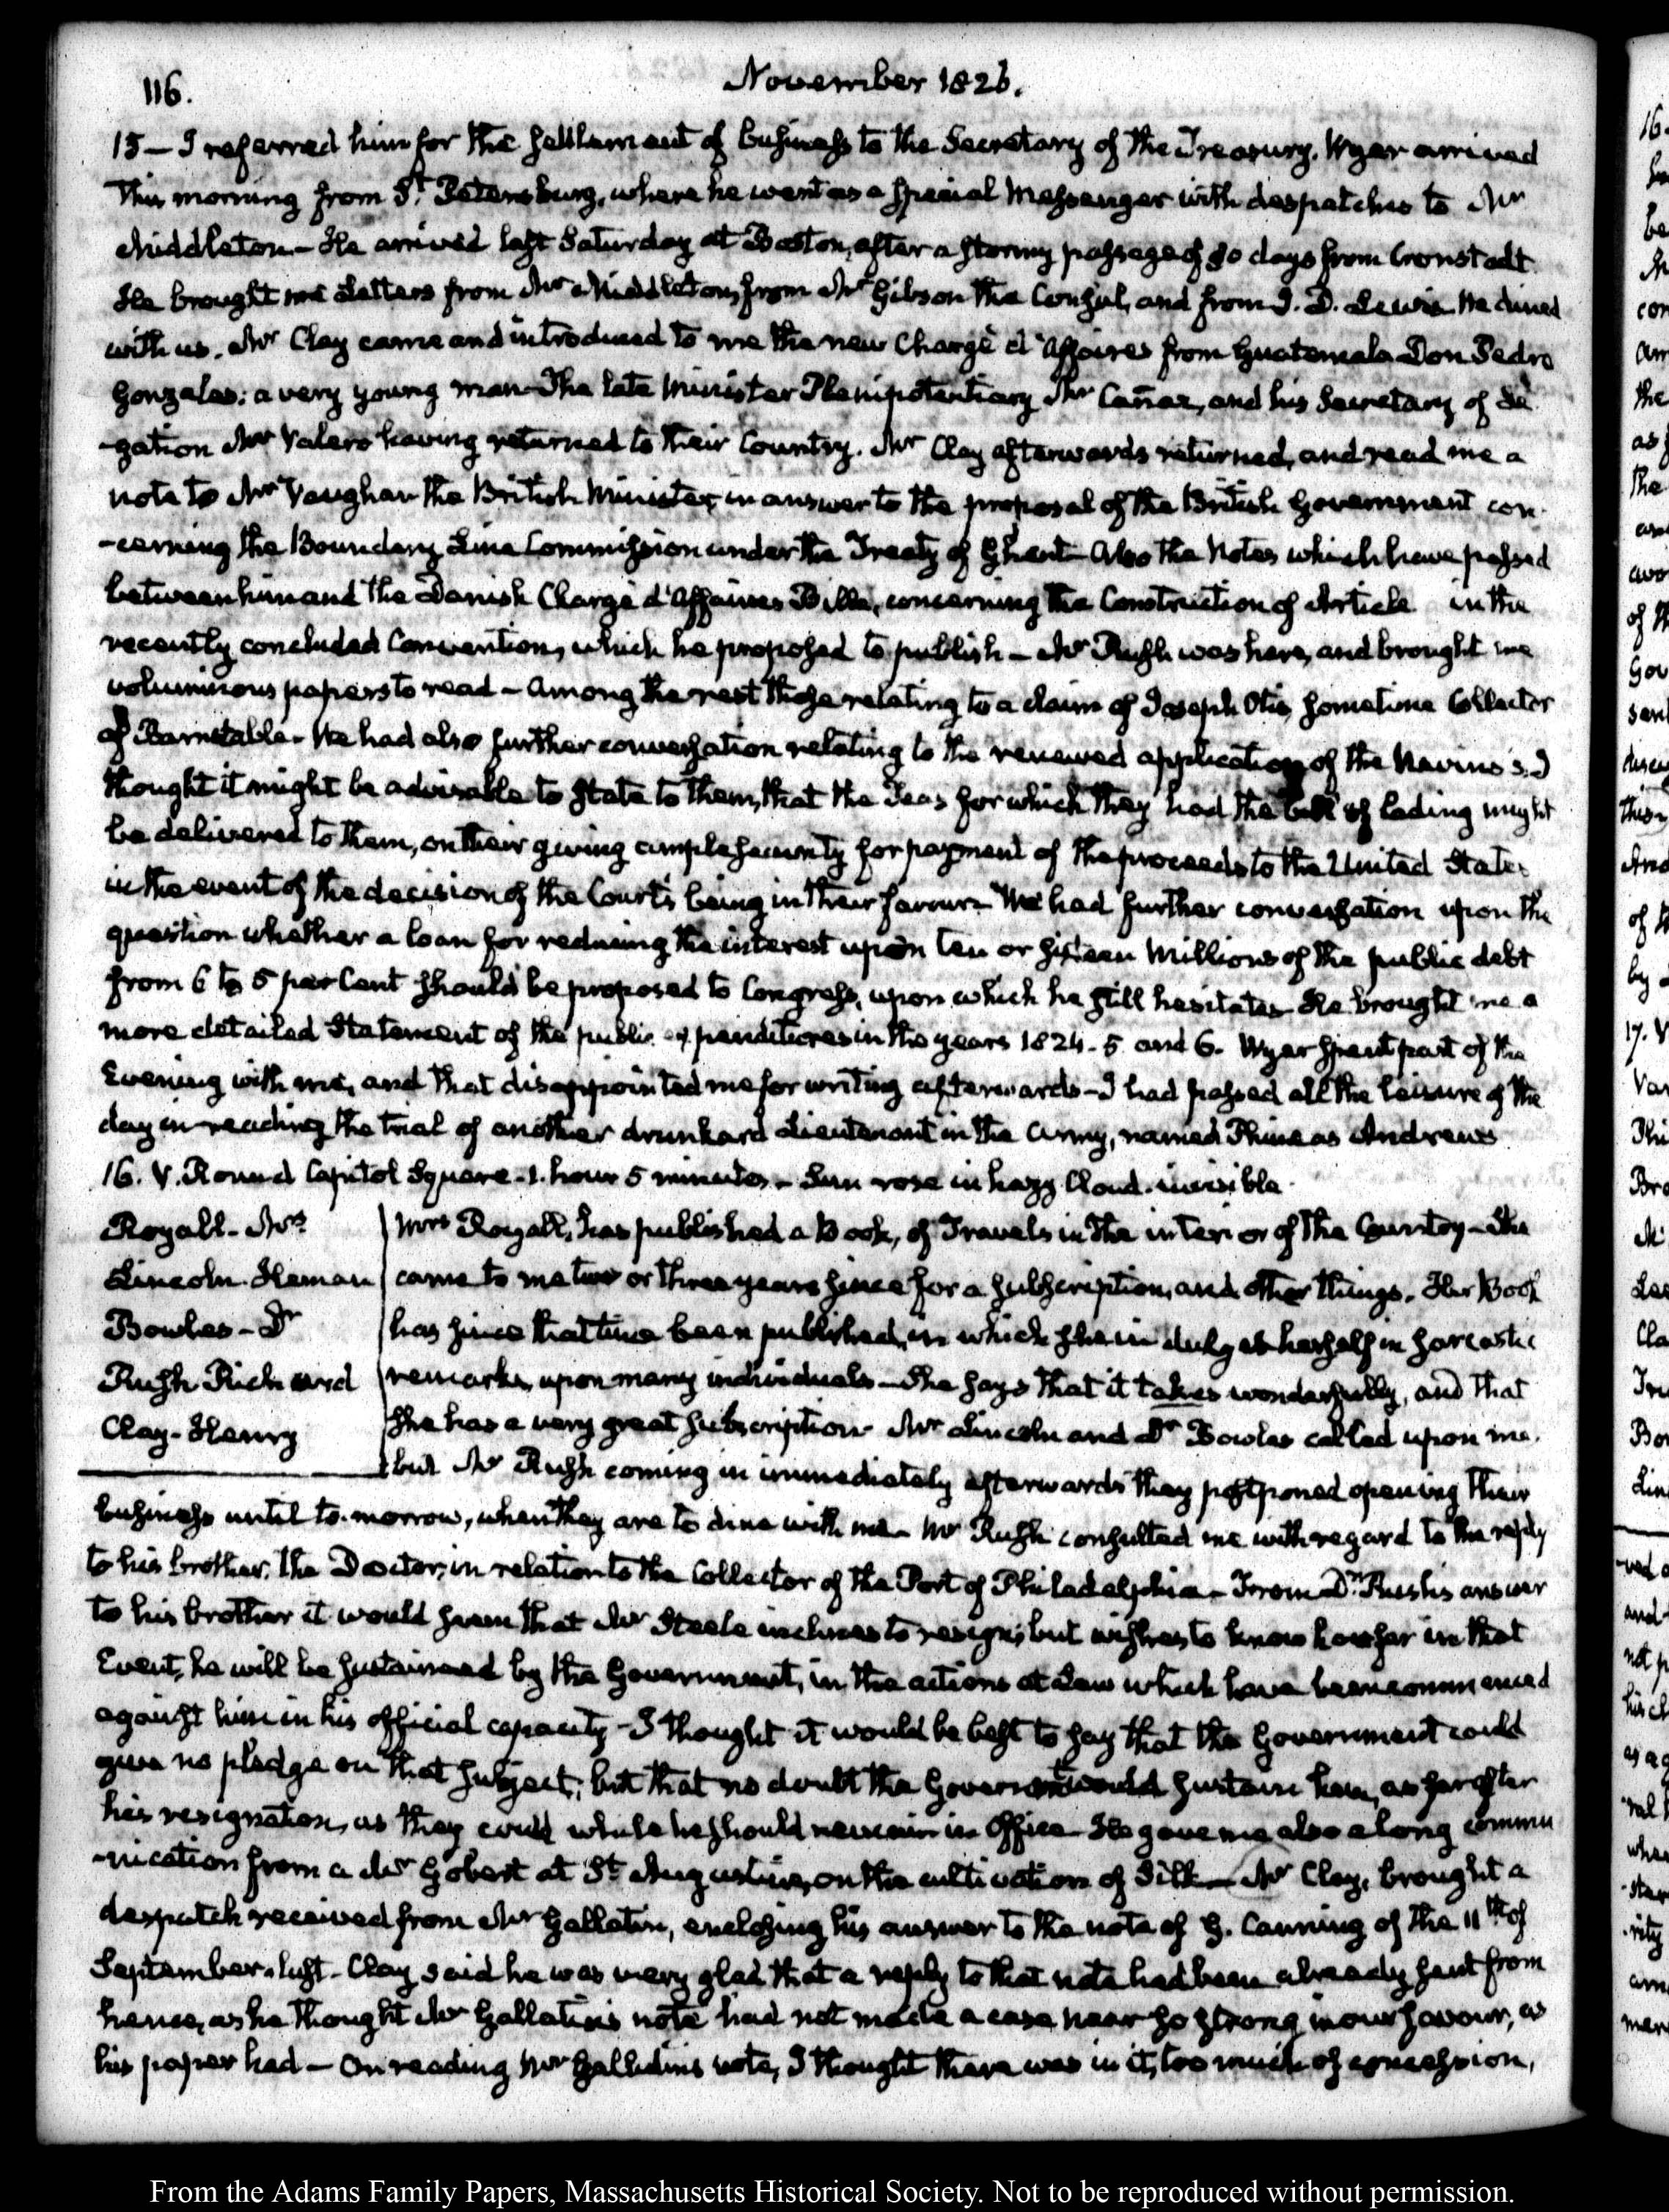 116.
November 1826.
15 — I referred him for the settlement of business to the Secretary of the Treasury. Wyer arrived
this morning from St. Petersburg, where he went as a special Messenger with despatches to Mr
Middleton — He arrived last Saturday at Boston, after a stormy passage of 80 days from Cronstadt.
He brought me Letters from Mr Middleton, from Mr Gibson the Consul, and from J. D. Lewis. He dined
with us. Mr Clay came and introduced to me the new Chargé d'Affaires from Guatemala Don Pedro
Gonzales; a very young man — The late Minister Plenipotentiary Mr Cañaz, and his Secretary of Le-
-gation Mr Valero having returned to their Country. Mr Clay afterwards returned, and read me a
note to Mr Vaughan the British Minister, in answer to the proposal of the British Government con-
-cerning the Boundary Line Commission under the Treaty of Ghent — Also the Notes which have passed
between him and the Danish Chargé d'Affaires Bille, concerning the Construction of Article in the
recently concluded Convention, which he proposed to publish — Mr Rush was here, and brought me
voluminous papers to read — Among the rest those relating to a claim of Joseph Otis sometime Collector
of Barnstable — We had also further conversation relating to the renewed application of the Nevins's. I
thought it might be advisable to state to them, that the Teas for which they had the bill of lading might
be delivered to them, on their giving ample security for payment of the proceeds to the United States
in the event of the decision of the Courts being in their favour — We had further conversation upon the
question whether a loan for reducing the interest upon ten or fifteen Millions of the public debt
from 6 to 5 per Cent should be proposed to Congress, upon which he still hesitates — He brought me a
more detailed Statement of the public expenditures in the years 1824. 5 and 6. Wyer spent part of the
Evening with me, and that disappointed me for writing afterwards — I had passed all the leisure of the
day in reading the trial of another drunkard Lieutenant in the Army, named Phineas Andrews
16. V. Round Capitol Square — 1. hour 5 minutes — Sun rose in hazy Cloud. invisible.
Royall — Mrs
Lincoln Heman
Bowles — Dr
Rush Richard
Clay — Henry
Mrs Royall, has published a Book, of Travels in the interior of the Country — She
came to me two or three years since for a subscription, and other things. Her Book
has since that time been published, in which she indulges herself in sarcastic
remarks, upon many individuals — She says that it takes wonderfully, and that
she has a very great subscription — Mr Lincoln and Dr Bowles called upon me.
but Mr Rush coming in immediately afterwards they postponed opening their
business until to-morrow, when they are to dine with me — Mr Rush consulted me with regard to the reply
to his brother, the Doctor, in relation to the Collector of the Port of Philadelphia — From Dr Rush's answer
to his brother it would seem that Mr Steele inclines to resign; but wishes to know how far in that
Event, he will be sustained by the Government, in the actions at Law which have been commenced
against him in his official capacity — I thought it would be best to say that the Government could
give no pledge on that subject; but that no doubt the Government would sustain him, as far after
his resignation, as they could while he should remain in Office — He gave me also a long commu-
-nication from a Mr Gobert at St. Augustine, on the cultivation of Silk — Mr Clay, brought a
despatch received from Mr Gallatin, enclosing his answer to the note of G. Canning of the 11th of
September last — Clay said he was very glad that a reply to that note had been already sent from
hence, as he thought Mr Gallatin's note had not made a case near so strong in our favour, as
his paper had — On reading Mr Gallatin's note, I thought there was in it, too much of concession,
From the Adams Family Papers, Massachusetts Historical Society. Not to be reproduced without permission.